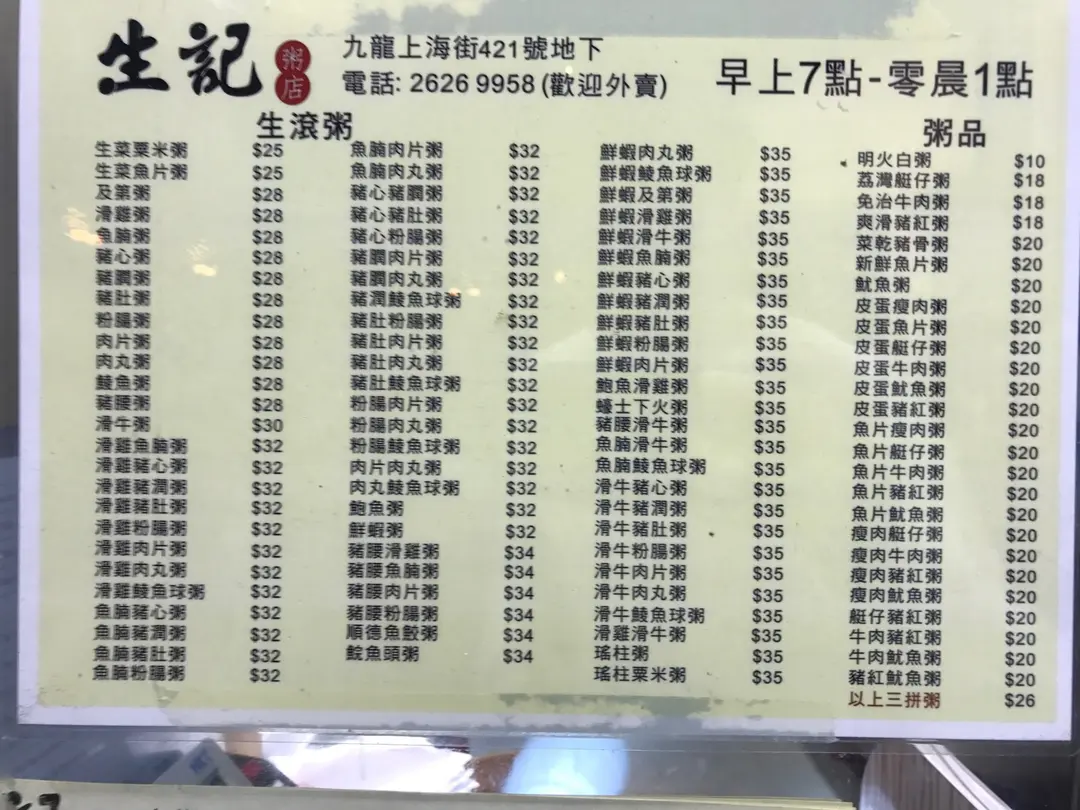 生記
粥店
九龍上海街421號地下
電話: 2626 9958 (歡迎外賣)
早上7點-零晨1點
生滾粥
生菜粟米粥 $25
生菜魚片粥 $25
及第粥 $28
滑雞粥 $28
魚腩粥 $28
豬心粥 $28
豬膶粥 $28
豬肚粥 $28
粉腸粥 $28
肉片粥 $28
肉丸粥 $28
鯪魚粥 $28
豬腰粥 $28
滑牛粥 $30
滑雞魚腩粥 $32
滑雞豬心粥 $32
滑雞豬潤粥 $32
滑雞豬肚粥 $32
滑雞粉腸粥 $32
滑雞肉片粥 $32
滑雞肉丸粥 $32
滑雞鯪魚球粥 $32
魚腩豬心粥 $32
魚腩豬潤粥 $32
魚腩豬肚粥 $32
魚腩粉腸粥 $32
魚腩肉片粥 $32
魚腩肉丸粥 $32
豬心豬膶粥 $32
豬心豬肚粥 $32
豬心粉腸粥 $32
豬膶肉片粥 $32
豬膶肉丸粥 $32
豬潤鯪魚球粥 $32
豬肚粉腸粥 $32
豬肚肉片粥 $32
豬肚肉丸粥 $32
豬肚鯪魚球粥 $32
粉腸肉片粥 $32
粉腸肉丸粥 $32
粉腸鯪魚球粥 $32
肉片肉丸粥 $32
肉丸鯪魚球粥 $32
鮑魚粥 $32
鮮蝦粥 $32
豬腰滑雞粥 $34
豬腰魚腩粥 $34
豬腰肉片粥 $34
豬腰粉腸粥 $34
順德魚餃粥 $34
鯇魚頭粥 $34
鮮蝦肉丸粥 $35
鮮蝦鯪魚球粥 $35
鮮蝦及第粥 $35
鮮蝦滑雞粥 $35
鮮蝦滑牛粥 $35
鮮蝦魚腩粥 $35
鮮蝦豬心粥 $35
鮮蝦豬潤粥 $35
鮮蝦豬肚粥 $35
鮮蝦粉腸粥 $35
鮮蝦肉片粥 $35
鮑魚滑雞粥 $35
蠔士下火粥 $35
豬腰滑牛粥 $35
魚腩滑牛粥 $35
魚腩鯪魚球粥 $35
滑牛豬心粥 $35
滑牛豬潤粥 $35
滑牛豬肚粥 $35
滑牛粉腸粥 $35
滑牛肉片粥 $35
滑牛肉丸粥 $35
滑牛鯪魚球粥 $35
滑雞滑牛粥 $35
瑤柱粥 $35
瑤柱粟米粥 $35
粥品
明火白粥 $10
荔灣艇仔粥 $18
免治牛肉粥 $18
爽滑豬紅粥 $18
菜乾豬骨粥 $20
新鮮魚片粥 $20
魷魚粥 $20
皮蛋瘦肉粥 $20
皮蛋魚片粥 $20
皮蛋艇仔粥 $20
皮蛋牛肉粥 $20
皮蛋魷魚粥 $20
皮蛋豬紅粥 $20
魚片瘦肉粥 $20
魚片艇仔粥 $20
魚片牛肉粥 $20
魚片豬紅粥 $20
魚片魷魚粥 $20
瘦肉艇仔粥 $20
瘦肉牛肉粥 $20
瘦肉豬紅粥 $20
瘦肉魷魚粥 $20
艇仔豬紅粥 $20
牛肉豬紅粥 $20
牛肉魷魚粥 $20
豬紅魷魚粥 $20
以上三拼粥 $26